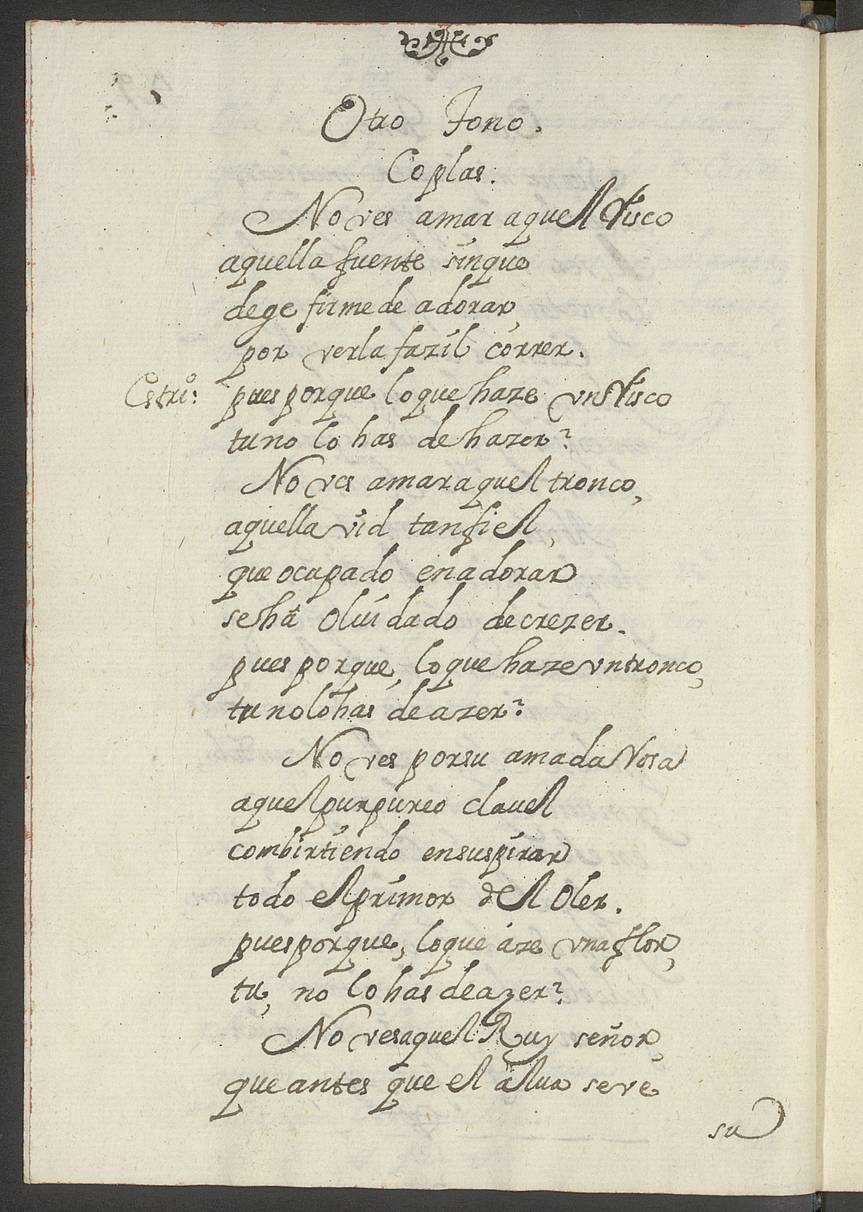 Otro Tono.
Coplas.
No ves amar aquel Risco
aquella fuente sinque
dege firme de adorar,
por verla fazil correr.
Estriº: pues porque lo que haze vn Risco
tu no lo has de hazer?
No ves amar aquel tronco,
aquella vid tan fiel,
que ocupado en adorar
se há olvidado de crezer.
pues porque, lo que haze vn tronco,
tu no lo has de azer?
No ves por su amada Rosa
aquel purpureo clavel
combirtiendo en suspirar
todo el primor del oler.
pues porque, lo que áze vna flor,
tu, no lo has de azer?
No ves aquel Ruy señor,
que antes que el alua se ve
su